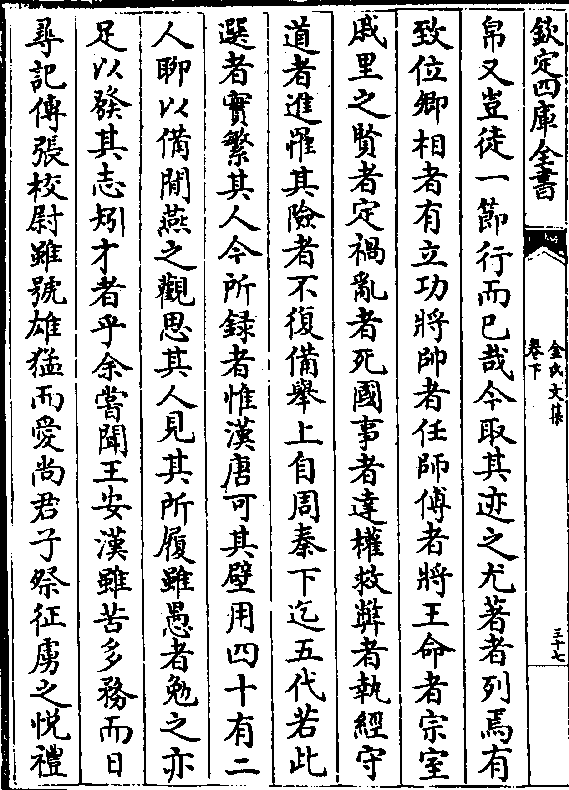 欽定四庫全書
金氏文集
卷下
三十七
帛又豈徒一節行而已哉今取其迹之尤著者列焉有
致位卿相者有立功將帥者任師傅者將王命者宗室
戚里之賢者定禍亂者死國事者達權救弊者執經守
道者進罹其險者不復備舉上自周秦下迄五代若此
選者實繁其人今所録者惟漢唐可其壁用四十有二
人聊以備閒燕之觀思其人見其所履雖愚者勉之亦
足以發其志矧才者乎余嘗聞王安漢雖苦多務而日
尋記傳張校尉雖號雄猛而愛尚君子祭征虜之悦禮